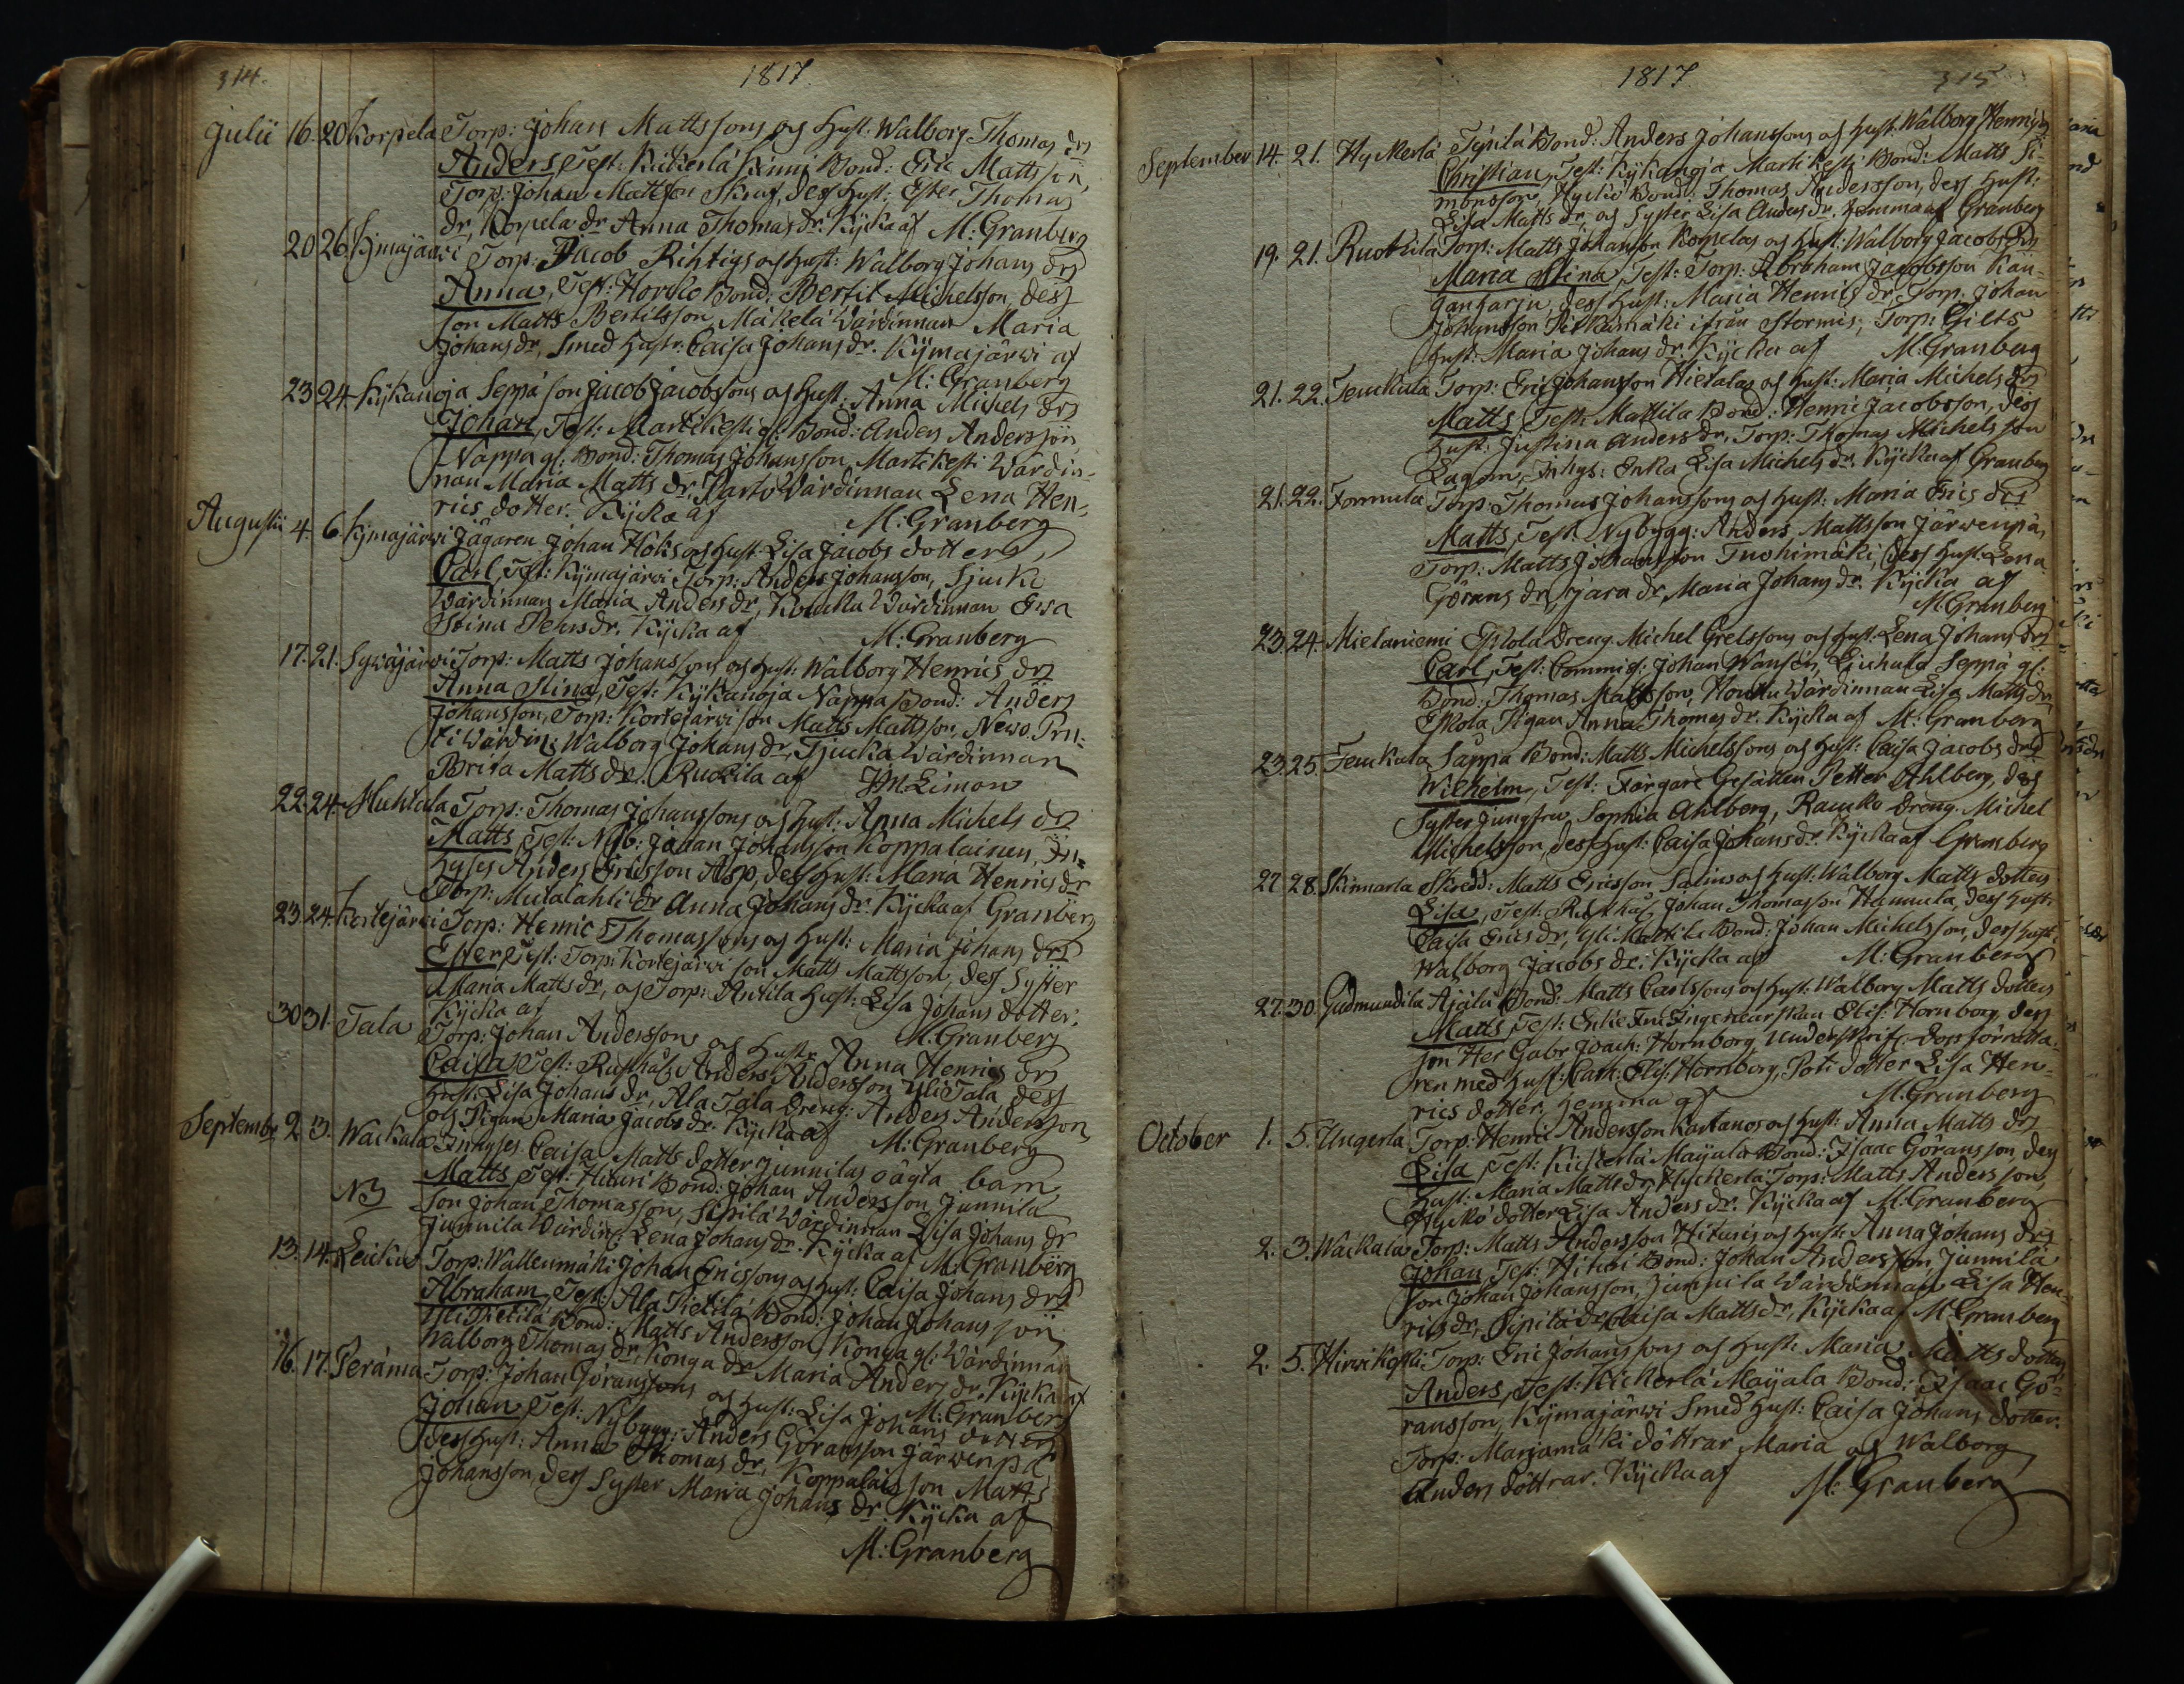 314.
1817.
Julii 16. 20 Korpela Torp: Johan Mattssons och Hust: Walborg Thomas drs
Anders, Test: Kickerlä Kinni Bond: Eric Mattsson,
Torp: Johan Mattsson Skraf, dess Hust: Ester Thomas
dr, Korpela dr Anna Thomas dr. Kycka af M: Granberg
20 26 Kymajärwi Torp: Jacob Rihtigs och Hust: Walborg Johans drs
Anna, Test: Horcko Bond: Bertil Michelsson, dess
son Matts Bertilsson, Mäkelä Wärdinnan Maria
Johans dr, Smed Hustr: Caisa Johans dr. Kymajärwi af
M: Granberg
23 24. Kykänoja Seppä son Jacob Jacobssons och Hust: Anna Michels drs
Johan, Test: Martikesti gl: Bond: Anders Andersson,
Nappa gl: Bond: Thomas Johansson, Martikesti Wärdin-
nan Maria Matts dr, Parto Wärdinnan Lena Hen-
rics dotter. Kycka af M: Granberg
Augusti 4. 6. Kymajärwi Jägaren Johan Höks och Hust: Lisa Jacobs dotters
Carl, Test: Kymajärwi Torp: Anders Johansson, Sjucki
Wärdinnan Maria Anders dr, Koucku Wärdinnan Ewa
Stina Pehrs dr. Kycka af M: Granberg
17. 21. Sywäjärwi Torp: Matts Johanssons och Hust: Walborg Henrics drs
Anna Stina, Test: Kykänoja Nappa Bond: Anders
Johansson, Torp: Kortejärwi son Matts Mattsson, Newo Pru-
ti Wärdin: Walborg Johans dr, Sjucka Wärdinnan
Brita Matts dr. Ruokila af H M Limon
22. 24. Muhtala Torp: Thomas Johanssons och Hust: Anna Michels drs
Matts, Test: Nyb: Johan Johansson Koppalainen, In-
hyses Anders Ericsson Asp, dess Hust: Maria Henrics dr
Torp: Mutalahti dr Anna Johans dr. Kycka af Granberg
23. 24. Kortejärwi Torp: Henric Thomassons och Hust: Maria Johans drs
Ester, Test: Torp: Kortejärwi son Matts Mattsson, dess Syster
Maria Matts dr, och Torp: Antila Hust: Lisa Johans dotter;
Kycka af M: Granberg
30 31. Tala Torp: Johan Anderssons och Hustr Anna Henrics drs
Caisa, Test: Rusthåls: Anders Andersson Yli Tala, dess
Hust: Lisa Johans dr, Ala Tala Dreng: Anders Andersson
och Pigan Maria Jacobs dr. Kycka af M: Granberg
Septembr 2. 3. Wackala Inhyses Caisa Matts dotter Junnilas oägta barn
NB Matts, Test: Hituri Bond: Johan Andersson, Junnila
son Johan Thomasson, Sipilä Wärdinnan Lisa Johans dr
Junnila Wärdin: Lena Johans dr. Kycka af M: Granberg
13. 14. Leickus Torp: Wallenmäki Johan Ericssons och Hust: Caisa Johans drs
Abraham, Test: Ala Pietilä Bond: Johan Johansson
Yli Pietilä Bond: Matts Andersson, Konga gl: Wärdinnan
Walborg Thomas dr, Konga dr Maria Anders dr. Kycka af
M: Granberg
16. 17. Peränne Torp: Johan Göranssons och Hust: Lisa Johans dotters
Johan, Test: Nybygg: Anders Göransson Järwenpä,
dess Hust: Anna Thomas dr, Koppalais son Matts
Johansson, dess Syster Maria Johans dr. Kycka af
M: Granberg
1817.
315
September 14. 21. Hyckerlä Sipilä Bond: Anders Johanssons och Hust: Walborg Henrics
Christian, Test: Kykänoja Martikesti Bond: Matts Si-
monsson, Hyckö Bond: Thomas Andersson, dess Hust:
Lisa Matts dr, och Syster Lisa Anders dr. hemma af Granberg
19. 21. Ruokila Torp: Matts Johansson Korpelas och Hust: Walborg Jacobs drs
Maria Stina, Test: Torp: Abraham Jacobsson Kan-
gangarju, dess Hust: Maria Henrics dr, Torp: Johan
Johansson Pitkämäki ifrån Stormis, Torp: Gilts
Hust: Maria Johans dr. Kycka af M: Granberg
21. 22. Jeuckala Torp: Eric Johansson Hietalas och Hust: Maria Michels drs
Matts, Test: Mattila Bond: Henric Jacobsson, dess
Hust: Justina Anders dr, Torp: Thomas Michelsson
Lagom, Inhys: Enka Lisa Michels dr. Kycka af Granberg
21. 22. Formula Torp: Thomas Johanssons och Hust: Maria Erics drs
Matts, Test: Nybygg: Anders Mattsson Järwenpä,
Torp: Matts Johansson Tuohimäki, dess Hust: Lena
Görans dr, Maria Johans dr. Kycka af
M: Granberg
23. 24. Mietaniemi Eskola Dreng Michel Grelssons och Hust: Lena Johans drs
Carl, Test: Commis: Johan Wansén, Liuhala Seppä gl:
Bond: Thomas Mattsson, Houcku Wärdinnan Lisa Matts dr,
Eskola Pigan Anna Thomas dr. Kycka af M: Granberg
23. 25. Jeuckala Sappa Bond: Matts Michelssons och Hust: Caisa Jacobs drs
Wilhelm, Test: Färgare Gesällen Petter Ahlberg, dess
Syster Jungfru Sophia Ahlberg, Raucko Dreng: Michel
Michelsson, dess Hust: Caisa Johans dr. Kycka af Granberg
27 28. Skinnarla Skredd: Matts Ericsson Salins och Hust: Walborg Matts dotters
Lisa, Test: Rusthåls: Johan Thomasson Hannula, dess Hust:
Caisa Erics dr, Yli Mattila Bond: Johan Michelsson, dess Hust:
Walborg Jacobs dr. Kycka af M: Granberg
27. 30. Gudmundila Äjälä Bond: Matts Carlssons och Hust: Walborg Matts dotters
Matts, Test: Enke Fru Ingenieurskan Elis: Hornborg, dess
son Her Gabr: Joach: Hornborg, underskrifts- dops förrätta-
ren med Hust: Cath: Elis: Hornborg, Poti dotter Lisa Hen-
rics dotter, hemma af M: Granberg
October 1. 5. Ungerla Torp: Henric Andersson Kartanos och Hust: Anna Matts drs
Lisa, Test: Kickerlä Mayala Bond: Isaac Göransson, dess
Hust: Maria Matts dr, Hyckerlä Torp: Matts Andersson,
Hyckö dotter Lisa Anders dr. Kycka af M: Granberg
2. 3. Wackala Torp: Matts Andersson Hituris och Hust: Anna Johans drs
Johan, Test: Hituri Bond: Johan Andersson, Junnila
son Johan Johansson, Junnila Wärdinnan Lisa Hen-
rics dr, Sipilä dr Caisa Matts dr, Kycka af M: Granberg
2. 5. Hirwikoski Torp: Eric Johanssons och Hust: Maria Matts dotters
Anders, Test: Kickerlä Mayala Bond: Isaac Gö-
ransson, Kymajärwi Smed Hust: Caisa Johans dotter.
Torp: Marjamäki döttrar Maria och Walborg
Anders döttrar. Kycka af M: Granberg